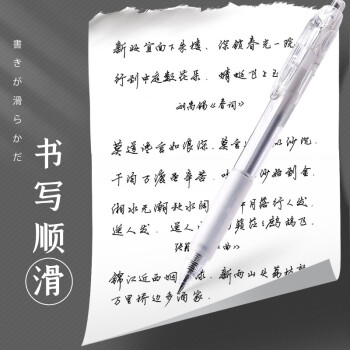 書きが滑らかだ
书写顺滑
新妆宜面下朱楼,深锁春光一院
行到中庭数花朵,蜻蜓飞上玉
刘禹锡《春词》
莫道谗言如浪深,莫言 似沙沉.
千淘万漉虽辛苦,吹 沙始到金.
湘水无潮秋水阔 中月落行人发.
送人发,送人 鹧鸪飞.
锦江近西烟 水,新雨山头荔枝
万里桥边多酒家,